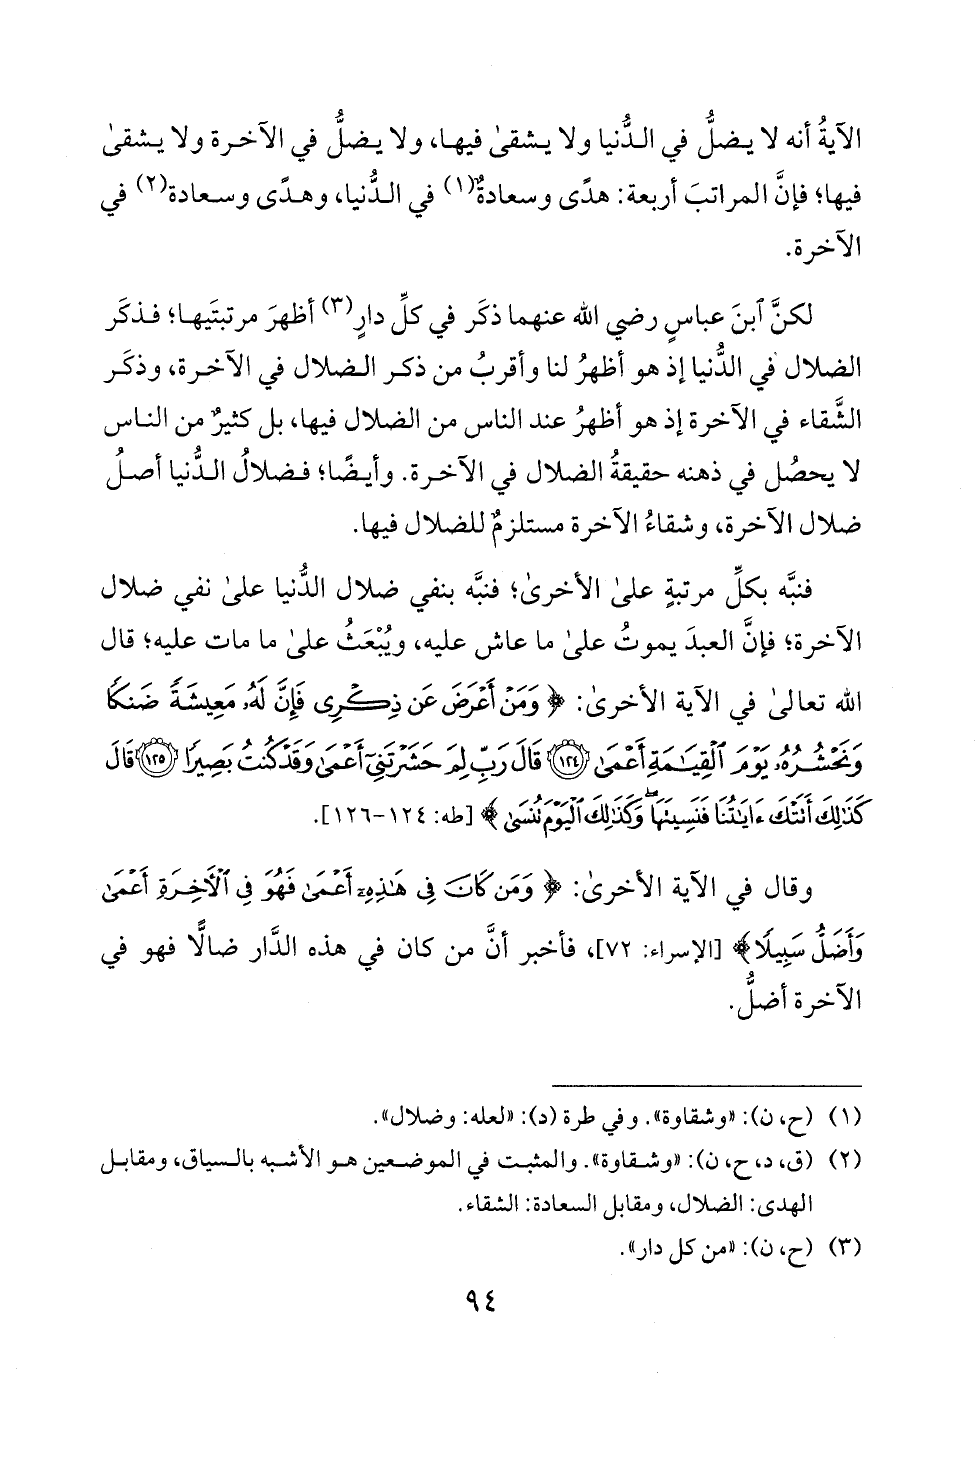 الآيةُ أنه لا يضلُّ في الدُّنيا ولا يشقىٰ فيها، ولا يضلُّ في الآخرة ولا يشقىٰ
فيها؛ فإنَّ المراتبَ أربعة: هدًى وسعادةٌ(١) في الدُّنيا، وهدًى وسعادة(٢) في
الآخرة.
لكنَّ ٱبنَ عباسٍ رضي الله عنهما ذكَر في كلِّ دارٍ(٣) أظهرَ مرتبتَيها؛ فذكَر
الضلال في الدُّنيا إذ هو أظهرُ لنا وأقربُ من ذكر الضلال في الآخرة، وذكَر
الشَّقاء في الآخرة إذ هو أظهرُ عند الناس من الضلال فيها، بل كثيرٌ من الناس
لا يحصُل في ذهنه حقيقةُ الضلال في الآخرة. وأيضًا؛ فضلالُ الدُّنيا أصلُ
ضلال الآخرة، وشقاءُ الآخرة مستلزمٌ للضلال فيها.
فنبَّه بكلِّ مرتبةٍ علىٰ الأخرىٰ؛ فنبَّه بنفي ضلال الدُّنيا علىٰ نفي ضلال
الآخرة؛ فإنَّ العبدَ يموتُ علىٰ ما عاش عليه، ويُبْعَثُ علىٰ ما مات عليه؛ قال
الله تعالىٰ في الآية الأخرىٰ: ﴿ وَمَنْ أَعْرَضَ عَن ذِكْرِى فَإِنَّ لَهُۥ مَعِيشَةً ضَنكًا
وَنَحْشُرُهُۥ يَوْمَ ٱلْقِيَـٰمَةِ أَعْمَىٰ ﴿١٢٤﴾ قَالَ رَبِّ لِمَ حَشَرْتَنِىٓ أَعْمَىٰ وَقَدْ كُنتُ بَصِيرًا ﴿١٢٥﴾ قَالَ
كَذَٰلِكَ أَتَتْكَ ءَايَـٰتُنَا فَنَسِيتَهَا ۖ وَكَذَٰلِكَ ٱلْيَوْمَ تُنسَىٰ ﴾ [طه: ١٢٤-١٢٦].
وقال في الآية الأخرىٰ: ﴿ وَمَن كَانَ فِى هَـٰذِهِۦٓ أَعْمَىٰ فَهُوَ فِى ٱلْـَٔاخِرَةِ أَعْمَىٰ
وَأَضَلُّ سَبِيلًا ﴾ [الإسراء: ٧٢]، فأخبر أنَّ من كان في هذه الدَّار ضالًّا فهو في
الآخرة أضلُّ.
(١) (ح، ن): «وشقاوة». وفي طرة (د): «لعله: وضلال».
(٢) (ق، د، ح، ن): «وشقاوة». والمثبت في الموضعين هو الأشبه بالسياق، ومقابل
الهدى: الضلال، ومقابل السعادة: الشقاء.
(٣) (ح، ن): «من كل دار».
٩٤